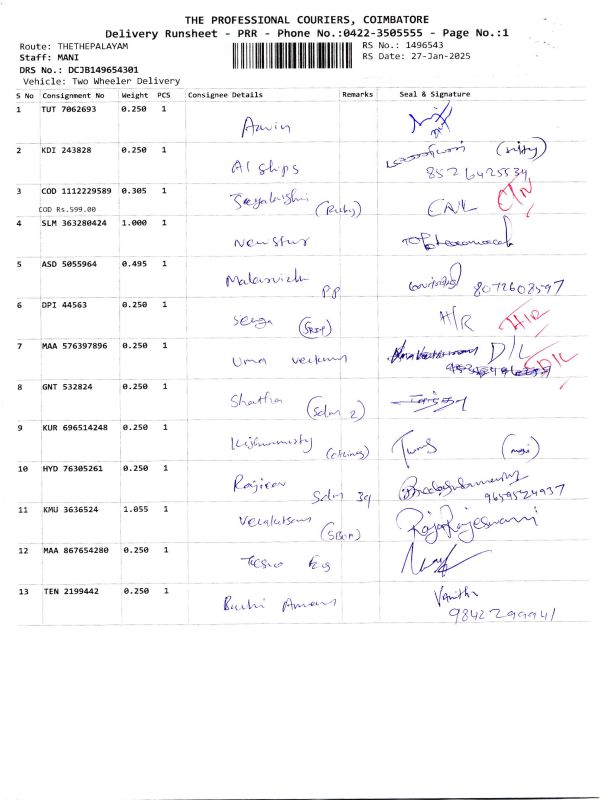 THE PROFESSIONAL COURIERS, COIMBATORE
Delivery Runsheet - PRR - Phone No.:0422-3505555 - Page No.:1
Route: THETHEPALAYAM
RS No.: 1496543
Staff: MANI
RS Date: 27-Jan-2025
DRS No.: DCJB149654301
Vehicle: Two Wheeler Delivery
S No Consignment No Weight PCS Consignee Details Remarks Seal & Signature
1 TUT 7062693 0.250 1
2 KDI 243828 0.250 1
Al ships 8526425534
3 COD 1112229589 0.305 1
COD Rs.599.00
(Ruby)
4 SLM 363280424 1.000 1
Newstar
5 ASD 5055964 0.495 1
PP 8072602597
6 DPI 44563 0.250 1
H/R H/R
7 MAA 576397896 0.250 1
Uma D/L D/L
8 GNT 532824 0.250 1
Shatha (Sdm 2)
9 KUR 696514248 0.250 1
10 HYD 76305261 0.250 1
Sdm 39 9659524937
11 KMU 3636524 1.055 1
RajaRajeswari
12 MAA 867654280 0.250 1
13 TEN 2199442 0.250 1
Vanitha
9842299941